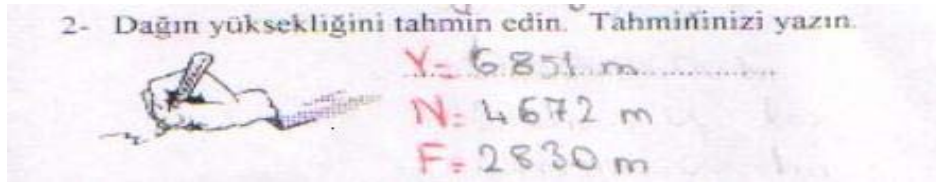 2- Dağın yüksekliğini tahmin edin. Tahmininizi yazın.
Y= 6851 m
N= 4672 m
F= 2830 m